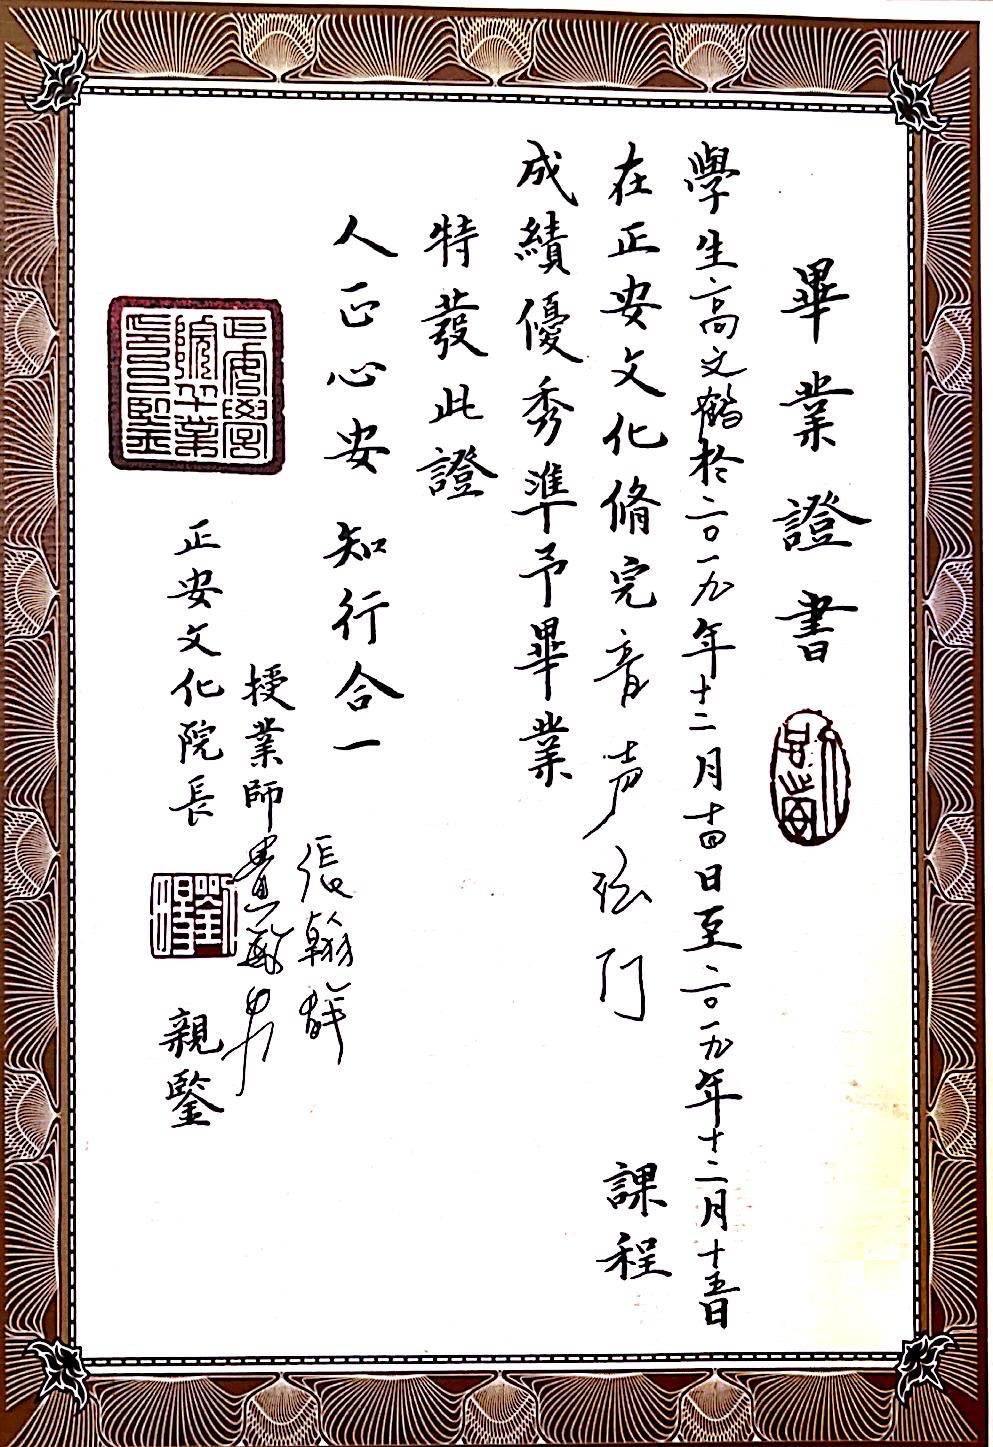 畢業證書
學生高文鶴於二〇一九年十二月十四日至二〇一九年十二月十五日
在正安文化脩完音声法门課程
成績優秀準予畢業
特發此證
人正心安 知行合一
張翰
授業師
正安文化院長 親鑒
正安學院畢業